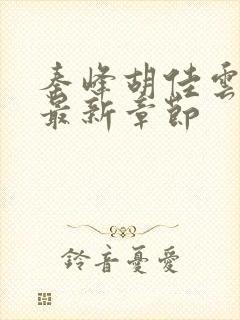 秦峰胡佳雲
最新章節
鈴音憂愛